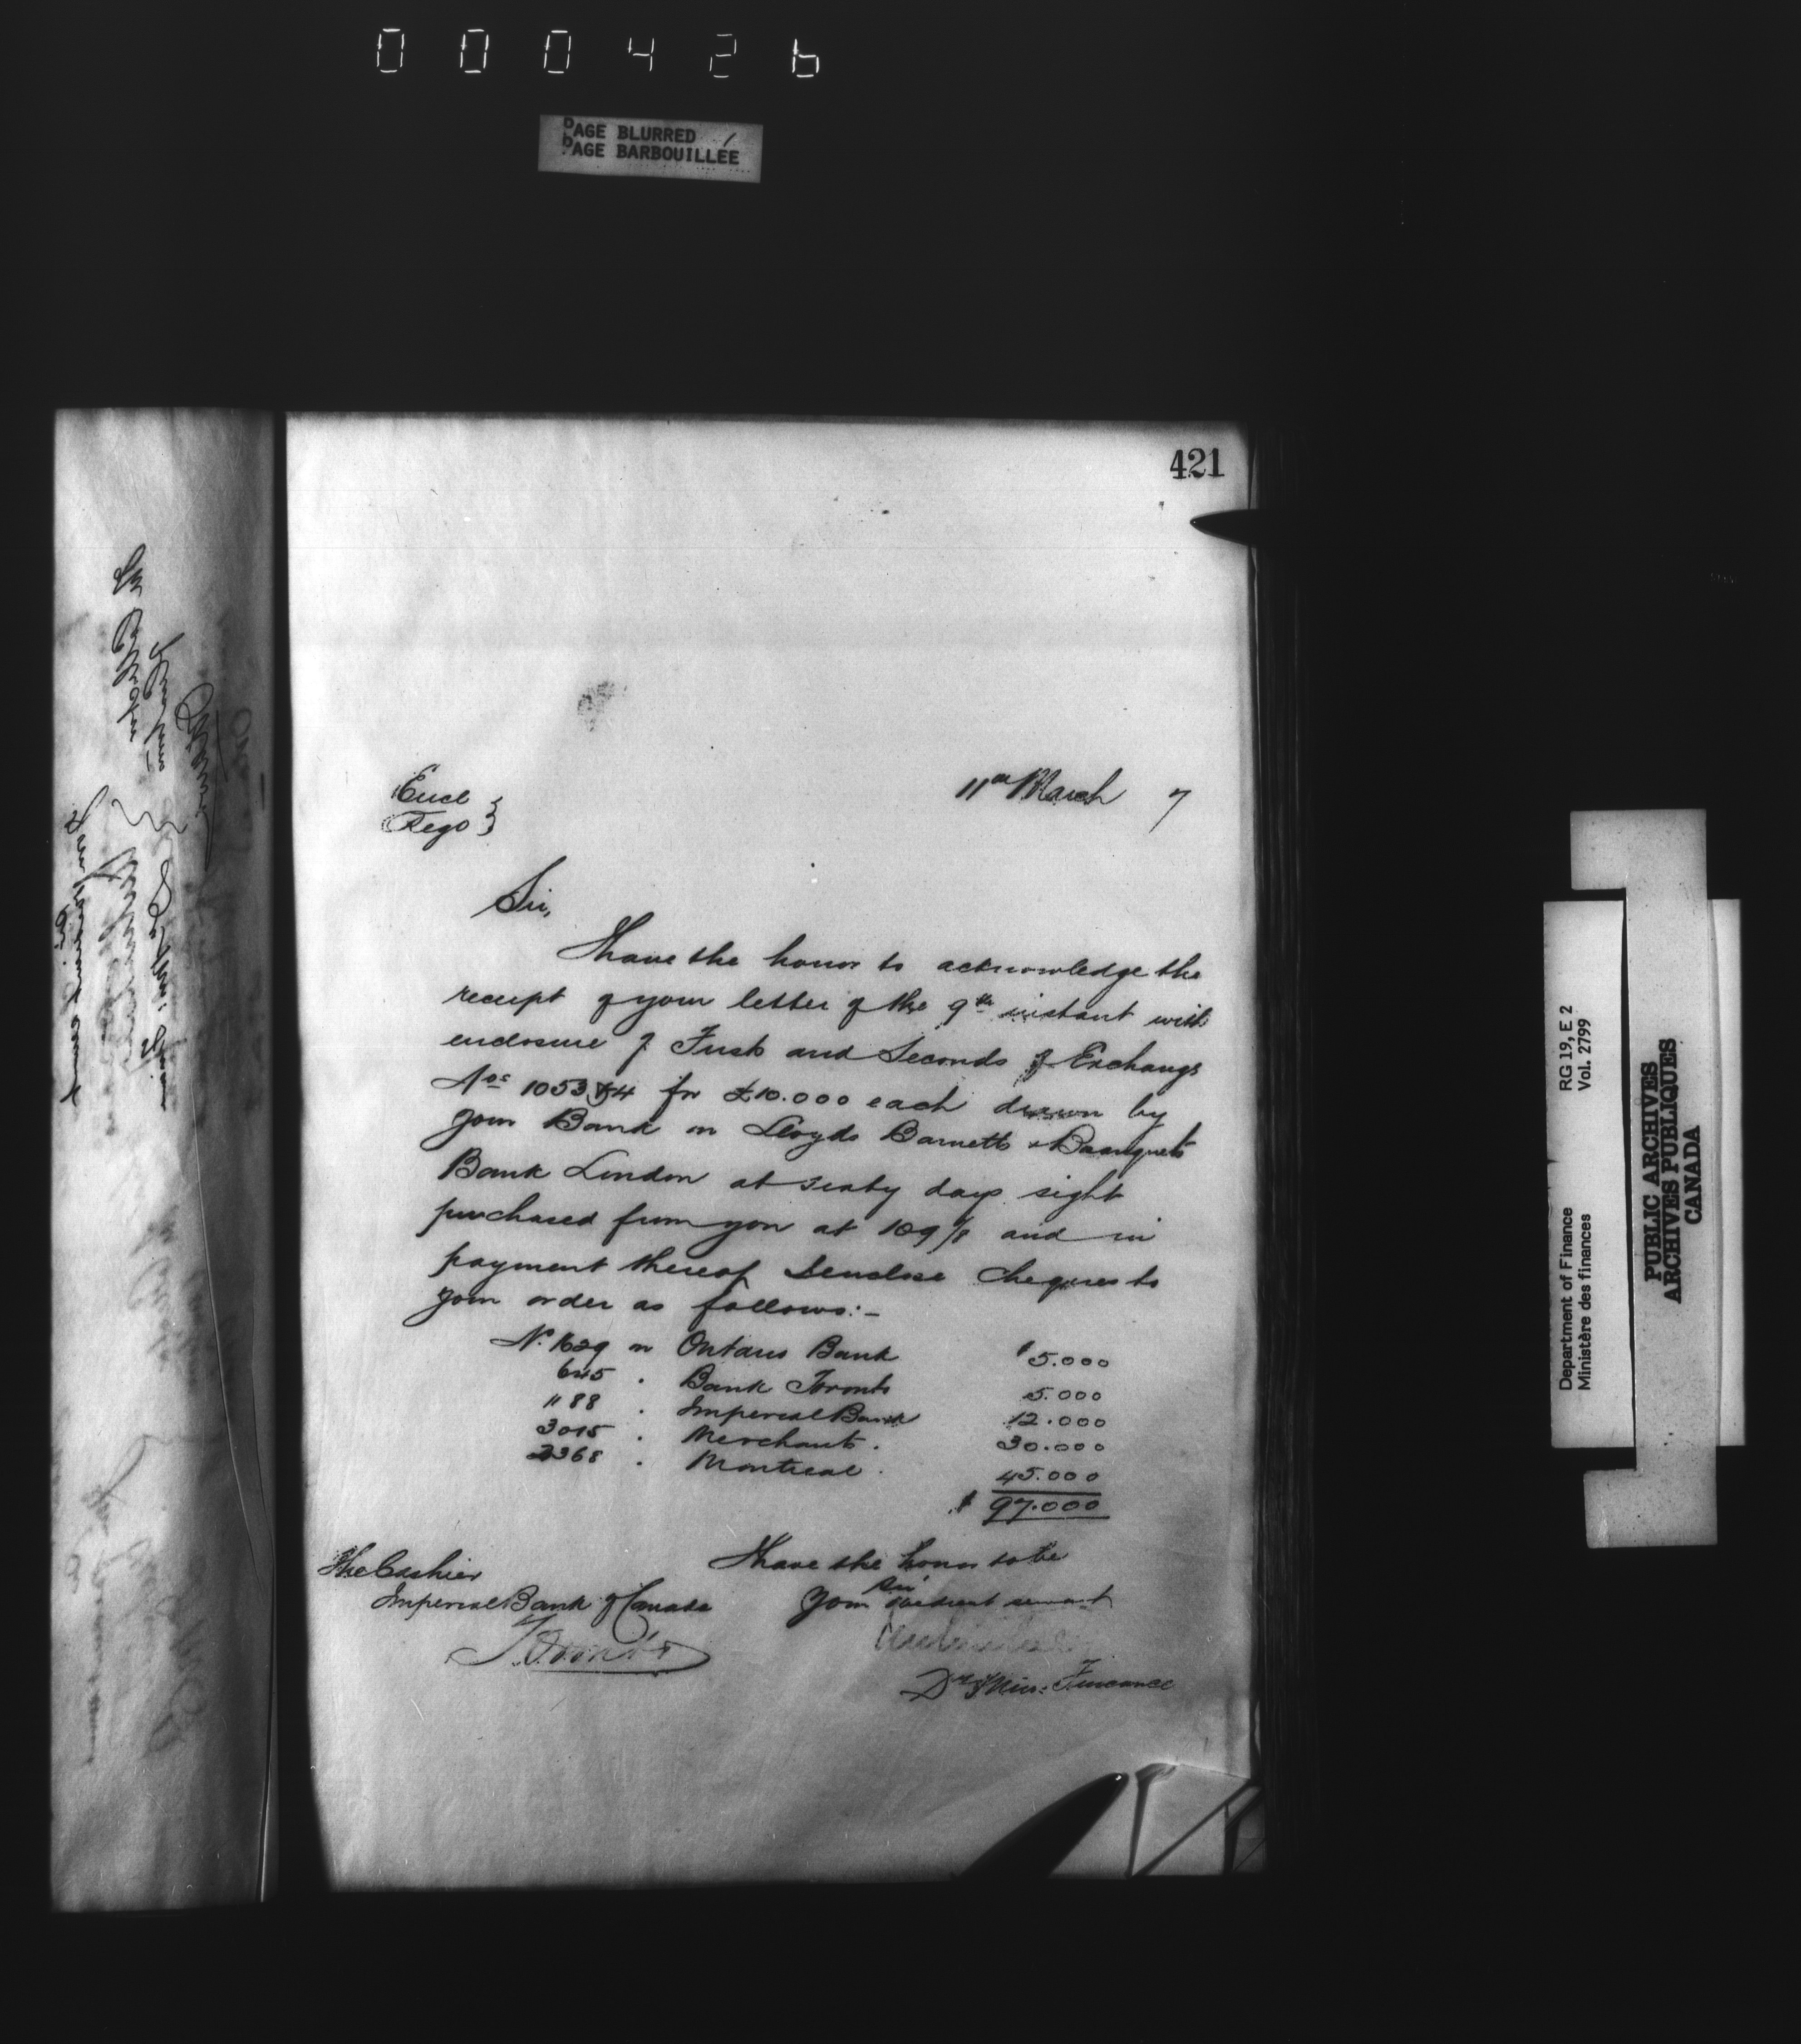 000426
PAGE BLURRED
PAGE BARBOUILLÉE
421
Encl
Rego
11th March 7
Sir,
I have the honor to acknowledge the
receipt of your letter of the 9th instant with
enclosure of Firsts and Seconds of Exchange
Nos 1053 & 4 for £10.000 each drawn by
your Bank on Lloyds Barnetts & Bosanquets
Bank London at sixty days sight
purchased from you at 109 1/8 and in
payment thereof I enclose cheques to
your order as follows:-
No. 1629 on Ontario Bank $5.000
645 " Bank Toronto 5.000
1188 " Imperial Bank 12.000
3015 " Merchants " 30.000
2368 " Montreal " 45.000
$ 97.000
I have the honor to be
Sir
Your obedient servant
Dy Min: Finance
The Cashier
Imperial Bank of Canada
Toronto
Department of Finance RG 19, E 2
Ministère des finances Vol. 2799
PUBLIC ARCHIVES
ARCHIVES PUBLIQUES
CANADA